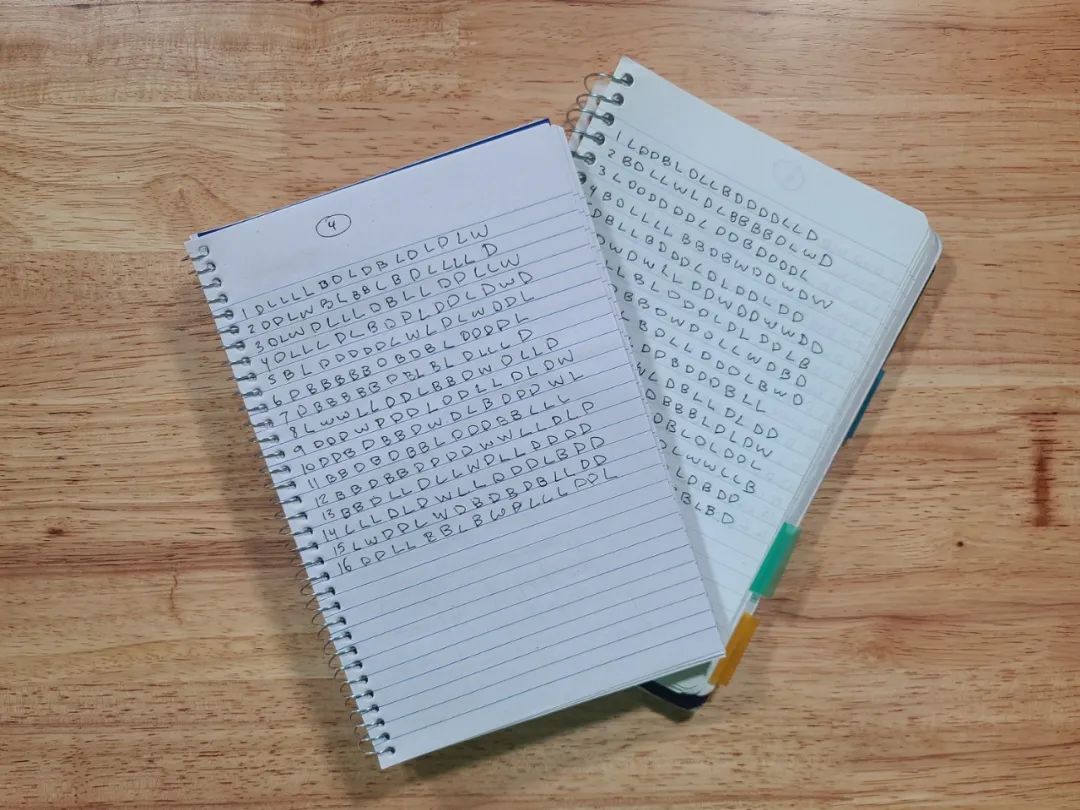 4
1 D L L L L B D L D B L D L D L W
2 D D L W B L B B L B D L L L L D
3 D L W D L L L L D B L L D D L L W
4 D L L L D L B D D L D D L D W D
5 B L D D D D D L W L D L W D D L
6 D B B B B B D B D B L D D D D L
7 D B B B B B D B L B L D L L L D
8 L W W L L D D L B B D W D L L D
9 D D D W D D D L D D L L D L D W
10 D D B D B B D W D L B D D D W L
11 B B D B D B B L D D D B B L L L
12 B B D B B D D D D W W L L D L D
13 B B D L L D L L W D L L D D D D
14 L L L D L D W L L D D D L B D D
15 L W D D L W D B D B D B L L D D
16 D D L L B B L B W D L L L D D L
1 L D D B L D L L B D D D D L L D
2 B D L L W L D L B B B B D L W D
3 L D D D D D D L D D B D D D D L
4 B D L L L L B B D B W D D W D W
D B L L B D D D L D L D D L D D
D W D W L L D D W D D W W D D
L B L D D D L D L D D L B
B B D D W D W D L L W D B D
L B D L L D D D D L B W D
D D B D D D B L L
W L D B L L D L D D
D B B B L D L D W
D B L D L D D L
L W W L L B
L D B D D
B L B D